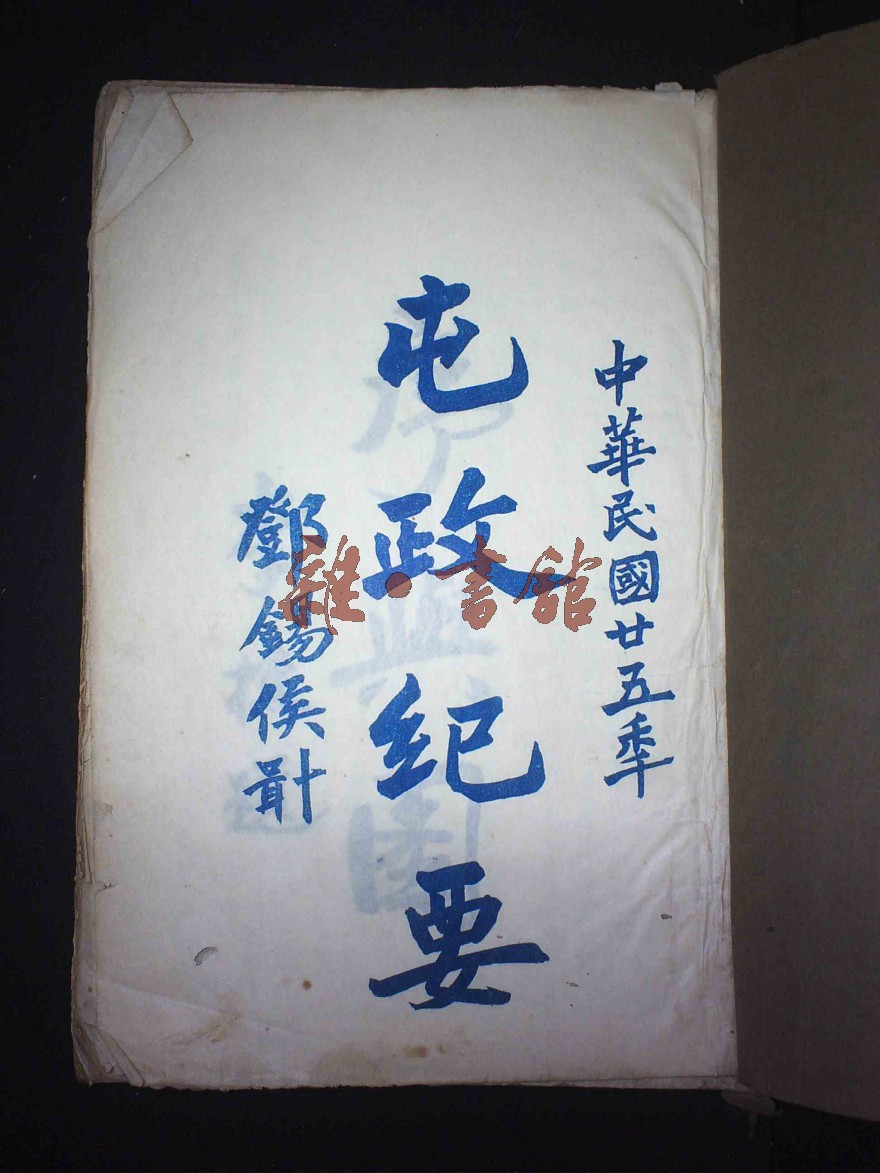 中華民國廿五秊
屯政紀要
鄧錫侯
雜·書館